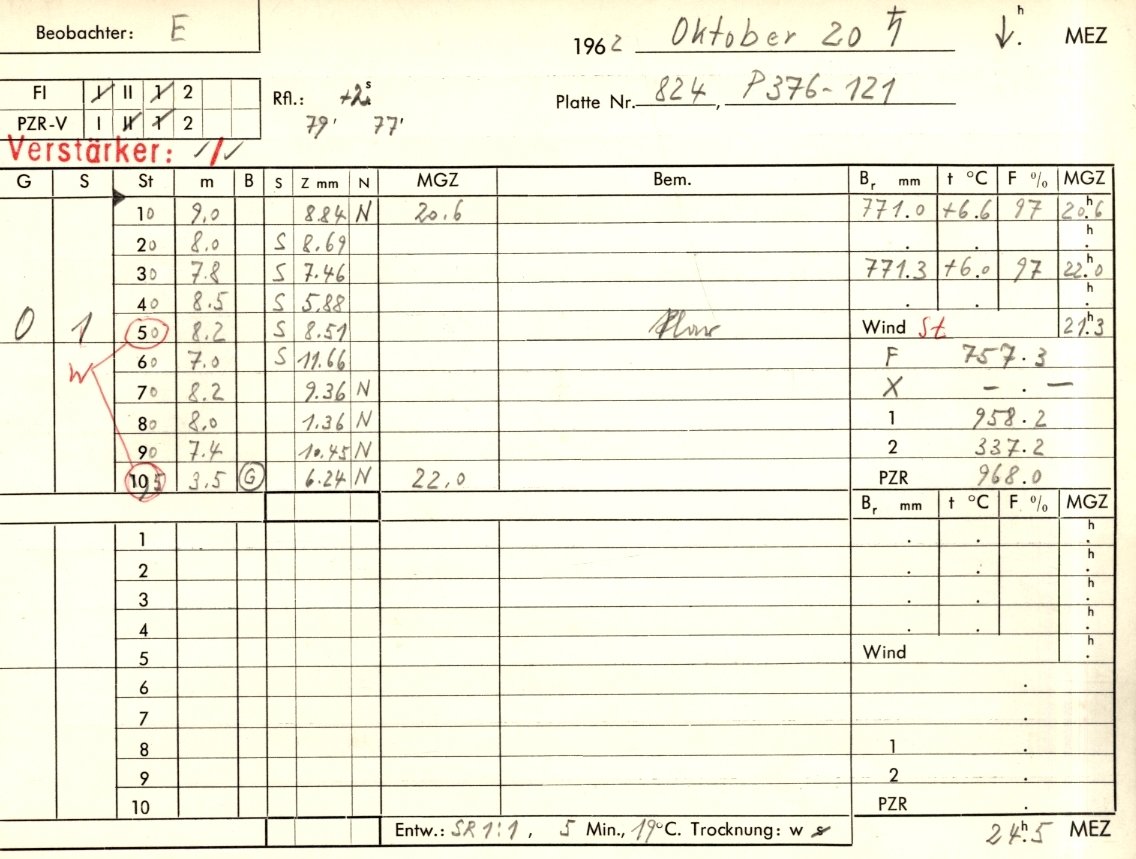 Beobachter: E
1962 Oktober 20 ♄ ↓ʰ. MEZ
FI I II 1 2
PZR-V I II 1 2
Rfl.: +2ˢ.
79' 77'
Platte Nr. 824, P376-121
Verstärker: ✓/✓
G S St m B S Z mm N MGZ Bem. Bᵣ mm t °C F % MGZ
10 9.0 8.84 N 20.6 771.0 +6.6 97 20ʰ.6
20 8.0 S 8.69 . . ʰ.
30 7.8 S 7.46 771.3 +6.0 97 22ʰ.0
40 8.5 S 5.88 . . ʰ.
0 1 50 8.2 S 8.51 Wind St 21ʰ.3
W 60 7.0 S 11.66 F 757.3
70 8.2 9.36 N X – . –
80 8.0 1.36 N 1 958.2
90 7.4 10.45 N 2 337.2
105 3.5 G 6.24 N 22.0 PZR 968.0
Bᵣ mm t °C F % MGZ
1 . . ʰ.
2 . . ʰ.
3 . . ʰ.
4 . . ʰ.
5 Wind ʰ.
6 .
7 .
8 1 .
9 2 .
10 PZR .
Entw.: SR 1:1, 5 Min., 19°C. Trocknung: w s
24ʰ.5 MEZ